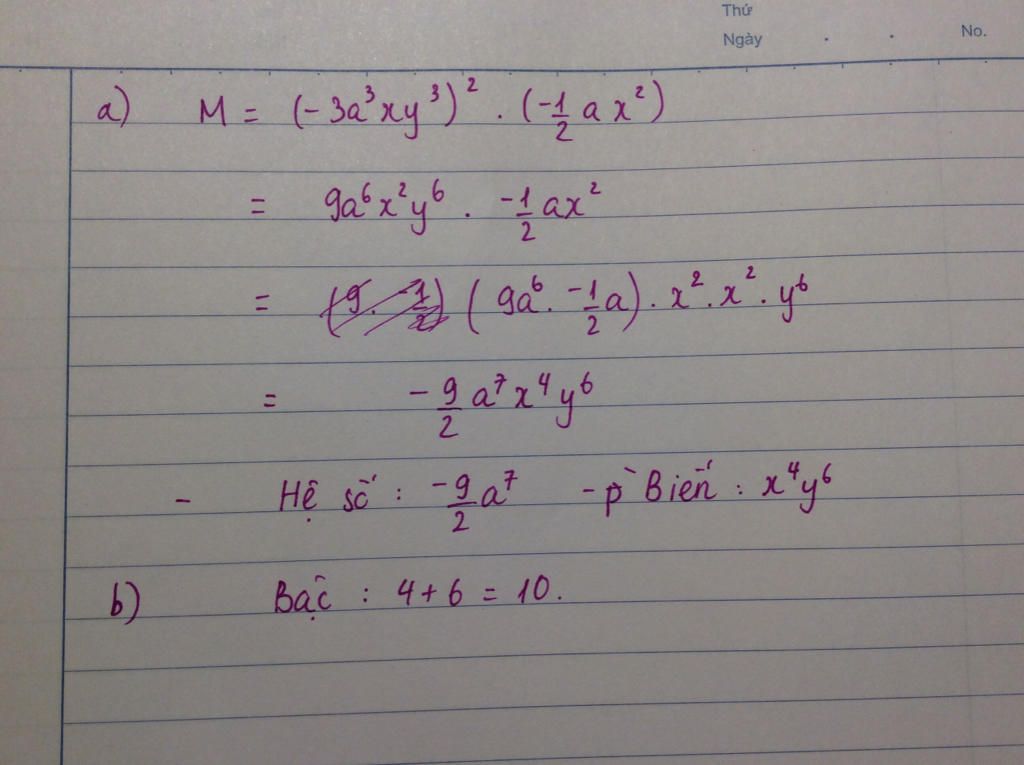 Thứ
Ngày . . No.
a) M = (-3a³xy³)² . (-1/2 a x²)
= 9a⁶x²y⁶ . -1/2 ax²
= (9 . -1/2) (9a⁶ . -1/2 a) . x² . x² . y⁶
= -9/2 a⁷x⁴y⁶
- Hệ số : -9/2 a⁷ - p̀ Biến : x⁴y⁶
b) Bậc : 4 + 6 = 10.